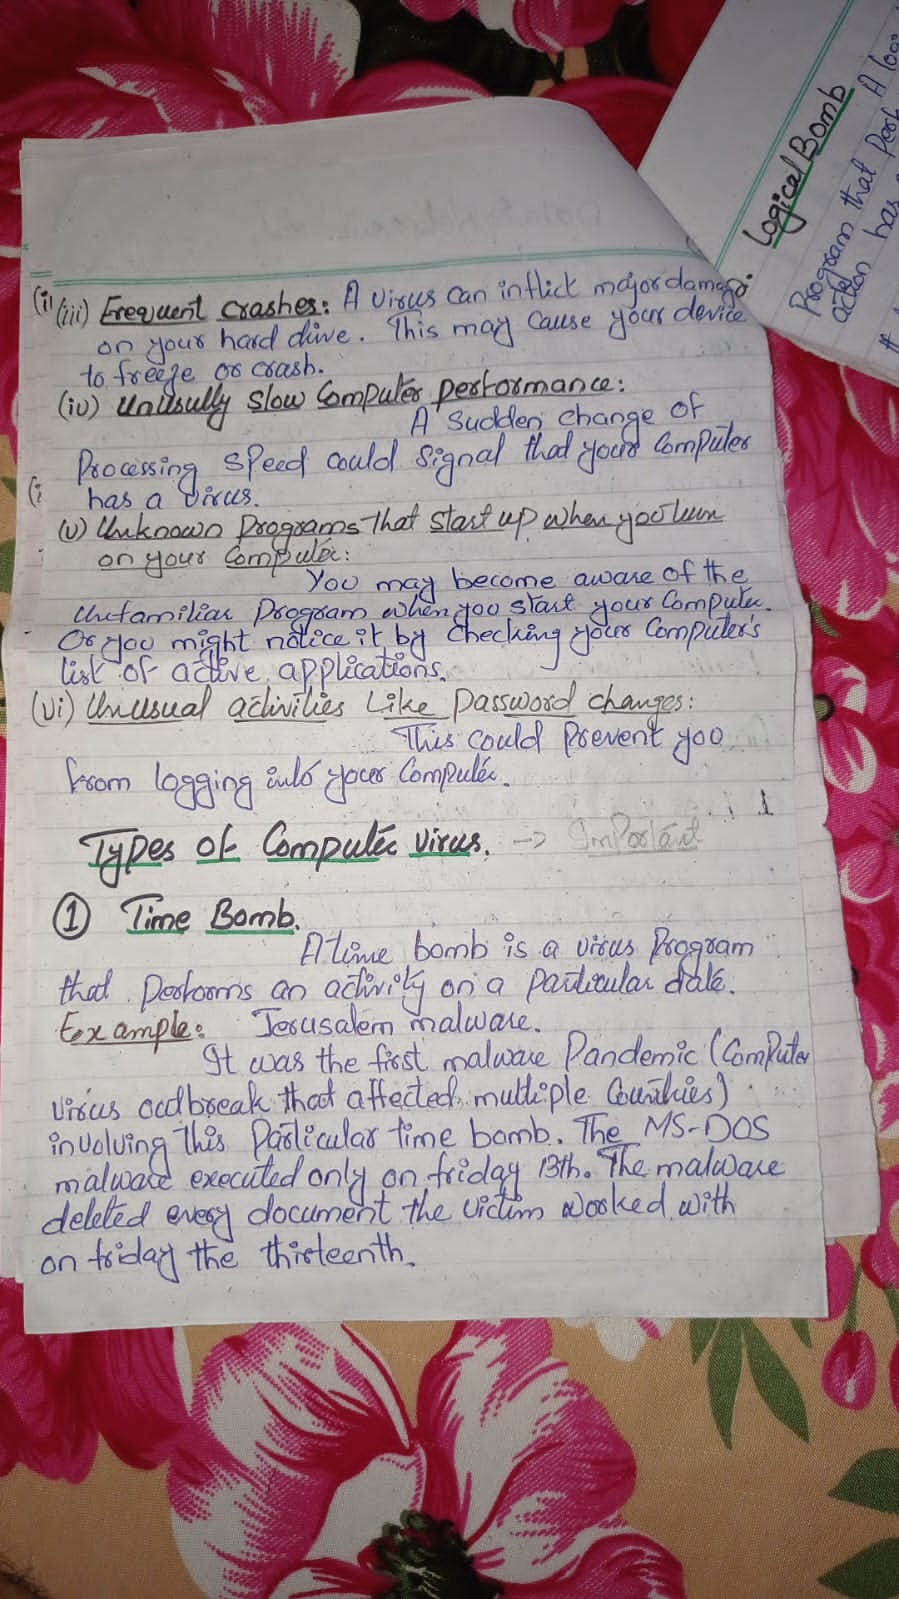 (iii) Frequent crashes: A virus can inflict major damage
on your hard dive. This may cause your device
to freeze or crash.
(iv) Unusully slow Computer performance:
A sudden change of
Processing speed could signal that your Computer
has a virus.
(v) Unknown programs that start up when you turn
on your Computer:
You may become aware of the
unfamiliar program when you start your Computer.
Or you might notice it by checking your Computer's
list of active applications.
(vi) Unusual activities Like password changes:
This could Prevent you
from logging into your Computer.
Types of Computer virus. -> Important
① Time Bomb.
A time bomb is a virus Program
that performs an activity on a particular date.
Example: Jerusalem malware.
It was the first malware Pandemic (Computer
virus outbreak that affected multiple Countries)
involving this Particular time bomb. The MS-DOS
malware executed only on friday 13th. The malware
deleted every document the victim worked with
on friday the thirteenth.
Logical Bomb
A
Program that
action has